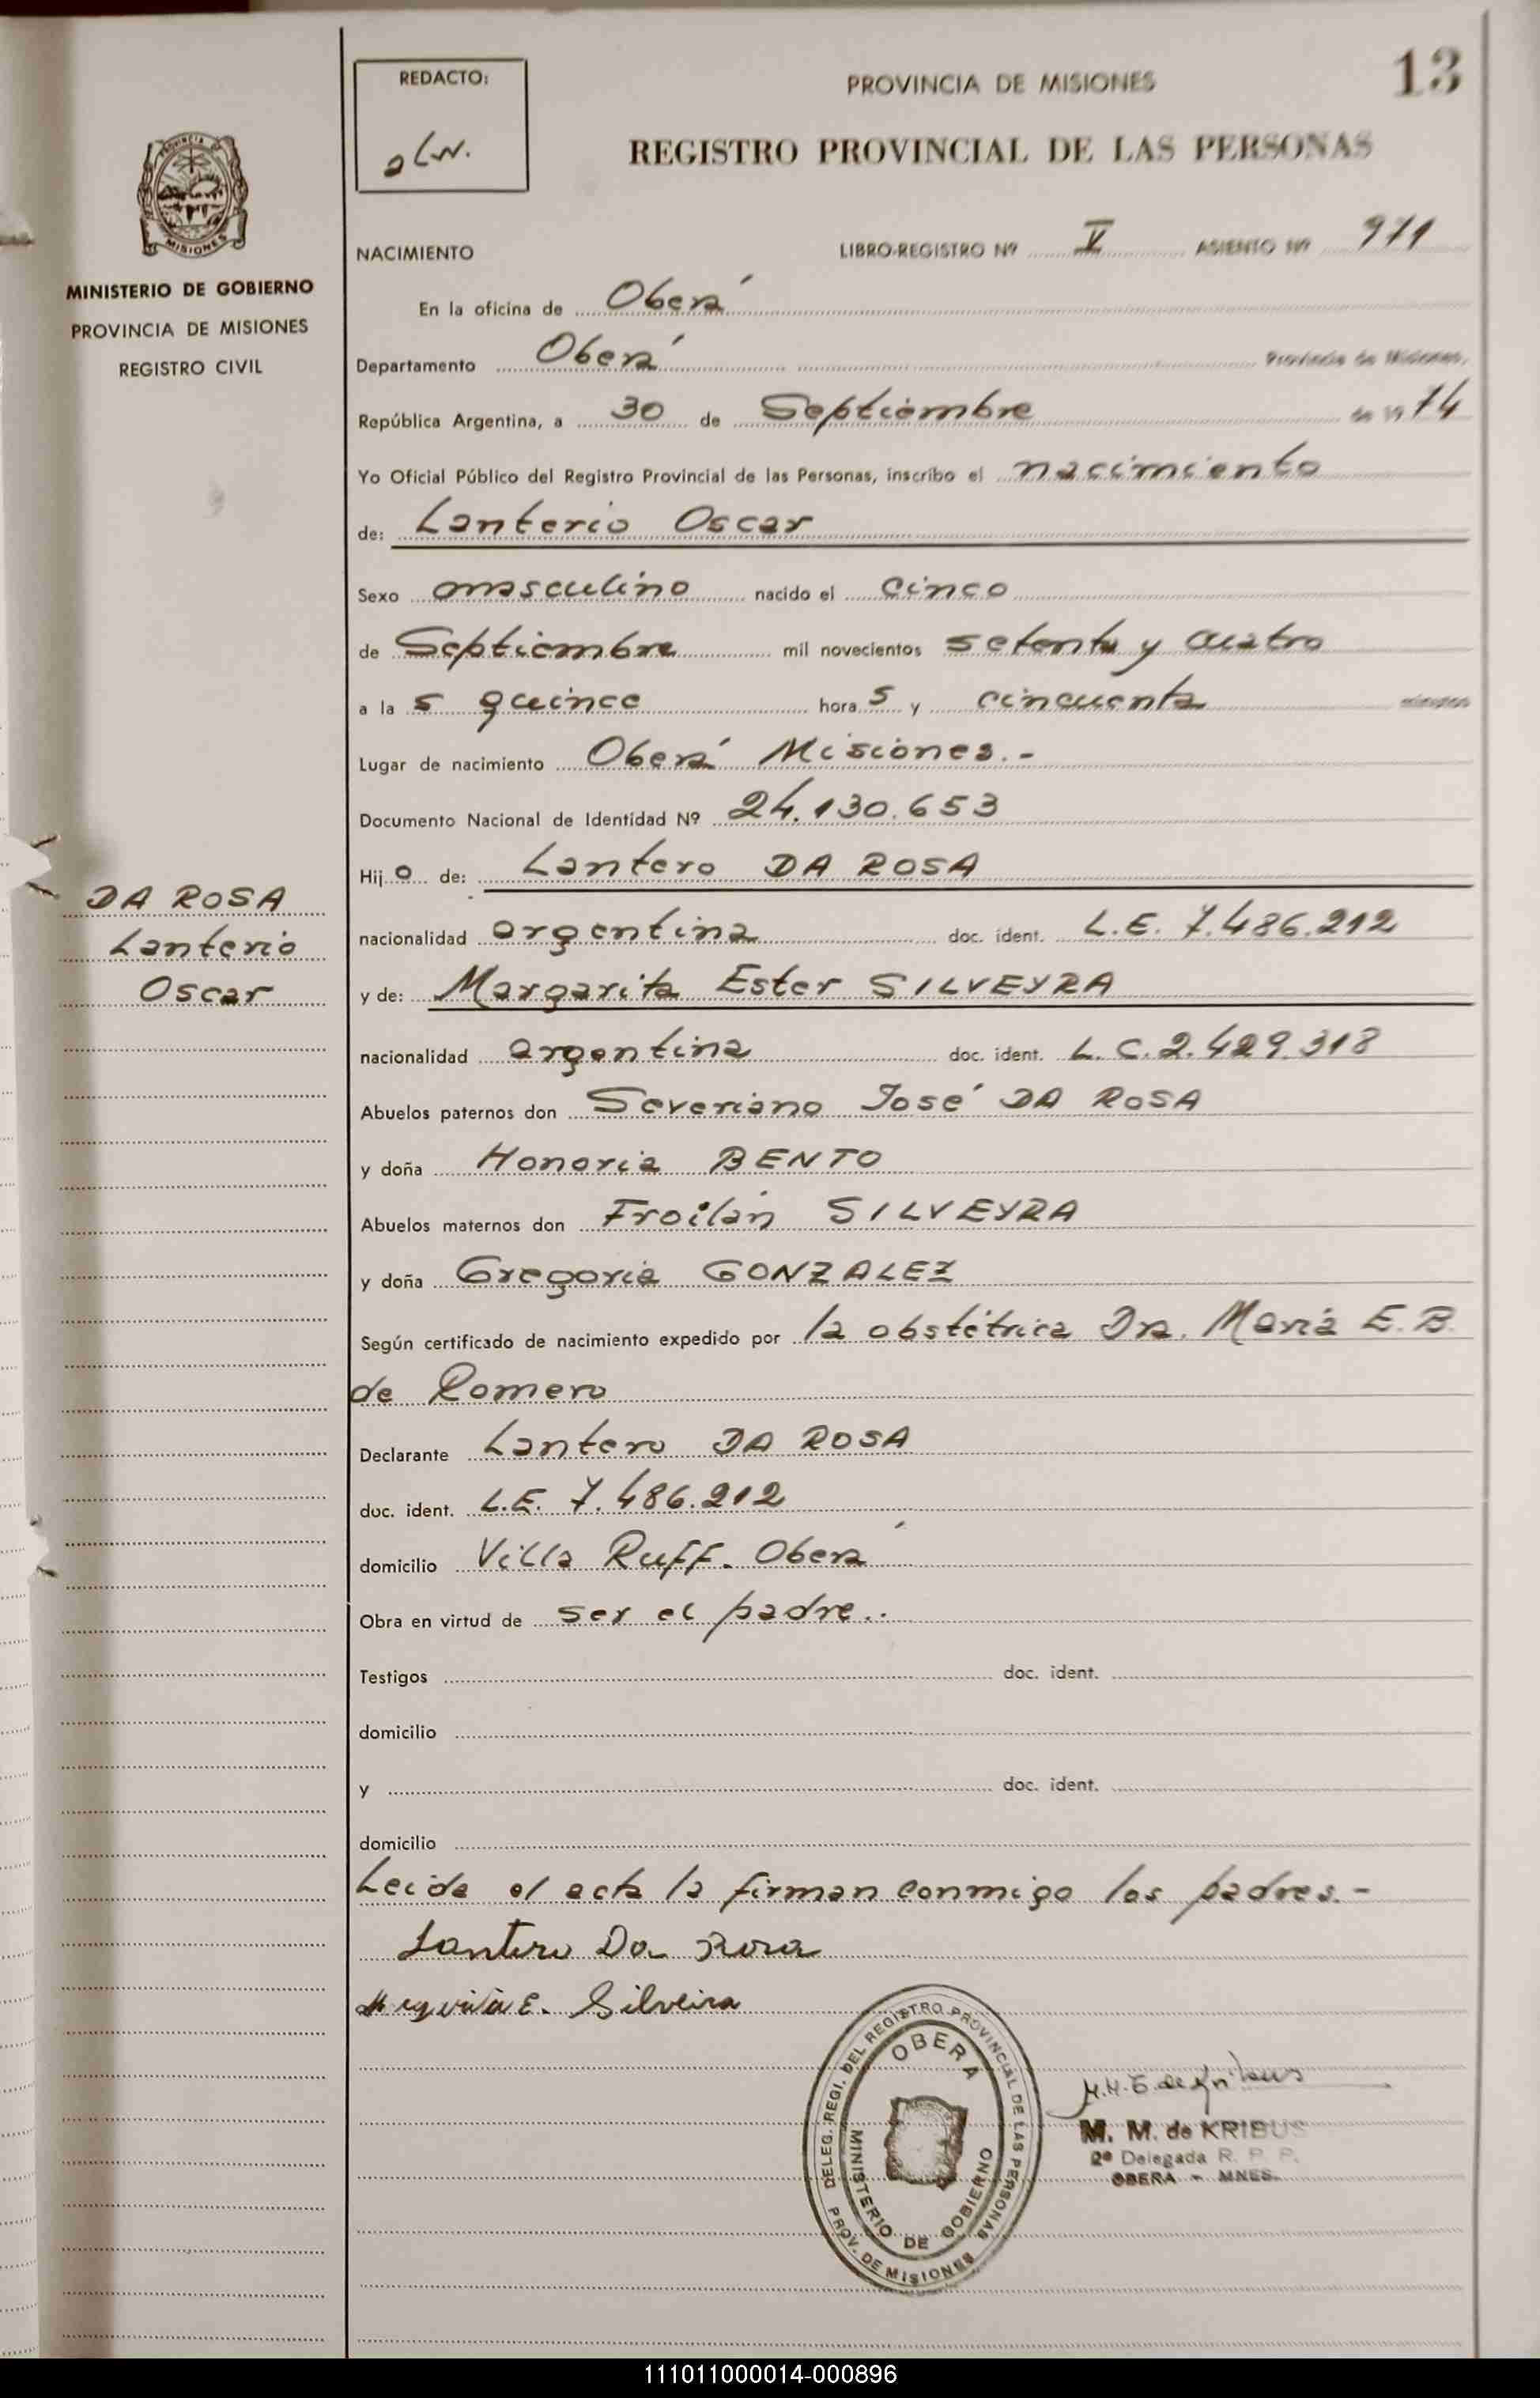 13
REDACTO:
PROVINCIA DE MISIONES
REGISTRO PROVINCIAL DE LAS PERSONAS
MISIONES
MINISTERIO DE GOBIERNO
PROVINCIA DE MISIONES
REGISTRO CIVIL
NACIMIENTO LIBRO-REGISTRO Nº V ASIENTO Nº 971
En la oficina de Oberá
Departamento Oberá Provincia de Misiones,
República Argentina, a 30 de Septiembre de 1974
Yo Oficial Público del Registro Provincial de las Personas, inscribo el nacimiento
de: Lanterio Oscar
Sexo masculino nacido el cinco
de Septiembre mil novecientos setenta y cuatro
a la s quince hora s y cincuenta minutos
Lugar de nacimiento Oberá Misiones.-
Documento Nacional de Identidad Nº 24.130.653
Hij o de: Lantero DA ROSA
DA ROSA
Lanterio
Oscar
nacionalidad argentina doc. ident. L.E. 7.486.212
y de: Margarita Ester SILVEYRA
nacionalidad argentina doc. ident. L.C. 2.429.318
Abuelos paternos don Severiano José DA ROSA
y doña Honoria BENTO
Abuelos maternos don Froilán SILVEYRA
y doña Gregoria GONZALEZ
Según certificado de nacimiento expedido por la obstétrica Dra. María E. B.
de Romero
Declarante Lantero DA ROSA
doc. ident. L.E. 7.486.212
domicilio Villa Ruff. Oberá
Obra en virtud de ser el padre..
Testigos doc. ident.
domicilio
y doc. ident.
domicilio
Leida el acta la firman conmigo los padres.-
Lantero Da Rosa
E. Silveira
DELEG. REGI. DEL REGISTRO PROVINCIAL DE LAS PERSONAS
OBERA
MINISTERIO DE GOBIERNO
PROV. DE MISIONES
M. M. de KRIBUS
2ª Delegada R. P. P.
OBERA - MNES.
111011000014-000896